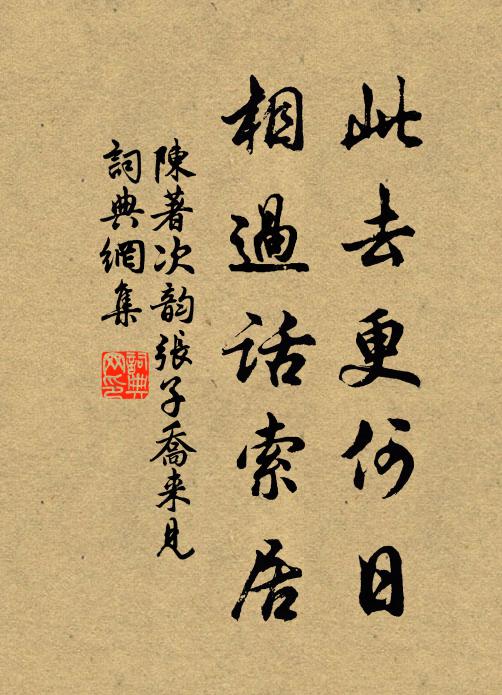 此去更何日
相過話索居
陳著次韵張子喬来見
詞典網集
詞典網印